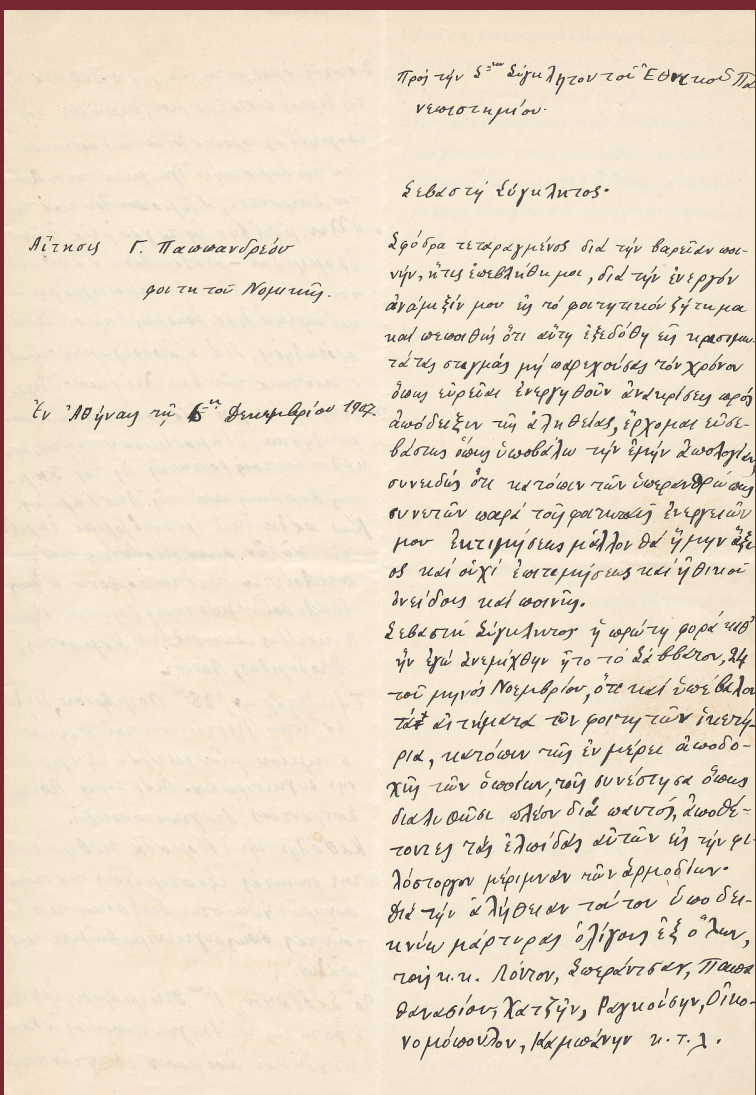 Αἴτησις Γ. Παπανδρέου
φοιτητοῦ Νομικῆς.
Ἐν Ἀθήναις τῇ 6ῃ Δεκεμβρίου 1907.
Πρὸς τὴν Σην Σύγκλητον τοῦ Ἐθνικοῦ Πα
νεπιστημίου.
Σεβαστὴ Σύγκλητος.
Σφόδρα τεταραγμένος διὰ τὴν βαρεῖαν ποι-
νήν, ἥτις ἐπεβλήθη μοι, διὰ τὴν ἐνεργόν
ἀνάμιξίν μου εἰς τὸ φοιτητικὸν ζήτημα
καὶ πεποιθὼς ὅτι αὕτη ἐξεδόθη εἰς κρισιμω-
τάτας στιγμὰς μὴ παρεχούσας τὸν χρόνον
ὅπως εὐρεῖαι ἐνεργηθοῦν ἀνακρίσεις πρὸς
ἀπόδειξιν τῆς ἀληθείας, ἔρχομαι εὐσε-
βάστως ὅπως ὑποβάλω τὴν ἐμὴν ἀπολογίαν
συνειδὼς ὅτι κατόπιν τῶν ὑπερανθρώπως
συνετῶν παρὰ τοῖς φοιτηταῖς ἐνεργειῶν
μου ἐκτιμήσεως μᾶλλον θὰ ἤμην ἄξι
ος καὶ οὐχὶ ἐπιτιμήσεως καὶ ἠθικοῦ
ὀνείδους καὶ ποινῆς.
Σεβαστὴ Σύγκλητος ἡ πρώτη φορὰ καθ'
ἣν ἐγὼ ἀνεμίχθην ἦτο τὸ Σάββατον, 24
τοῦ μηνὸς Νοεμβρίου, ὅτε καὶ ὑπέβαλον
τὰ αἰτήματα τῶν φοιτητῶν ἱκετή-
ρια, κατόπιν τῆς ἐν μέρει ἀποδο-
χῆς τῶν ὁποίων, τοῖς συνέστησα ὅπως
διαλυθῶσι πλέον διὰ παντός, ἀποθέ-
τοντες τὰς ἐλπίδας αὐτῶν εἰς τὴν φι-
λόστοργον μέριμναν τῶν ἁρμοδίων.
Διὰ τὴν ἀλήθειαν τούτου ὑποδει-
κνύω μάρτυρας ὀλίγους ἐξ ὅλων,
τοὺς κ.κ. Λόντον, Σπεράντσαν, Παπα
θανασίου, Χατζῆν, Ραγκούσην, Οἰκο-
νομόπουλον, Καμπάνην κ.τ.λ.